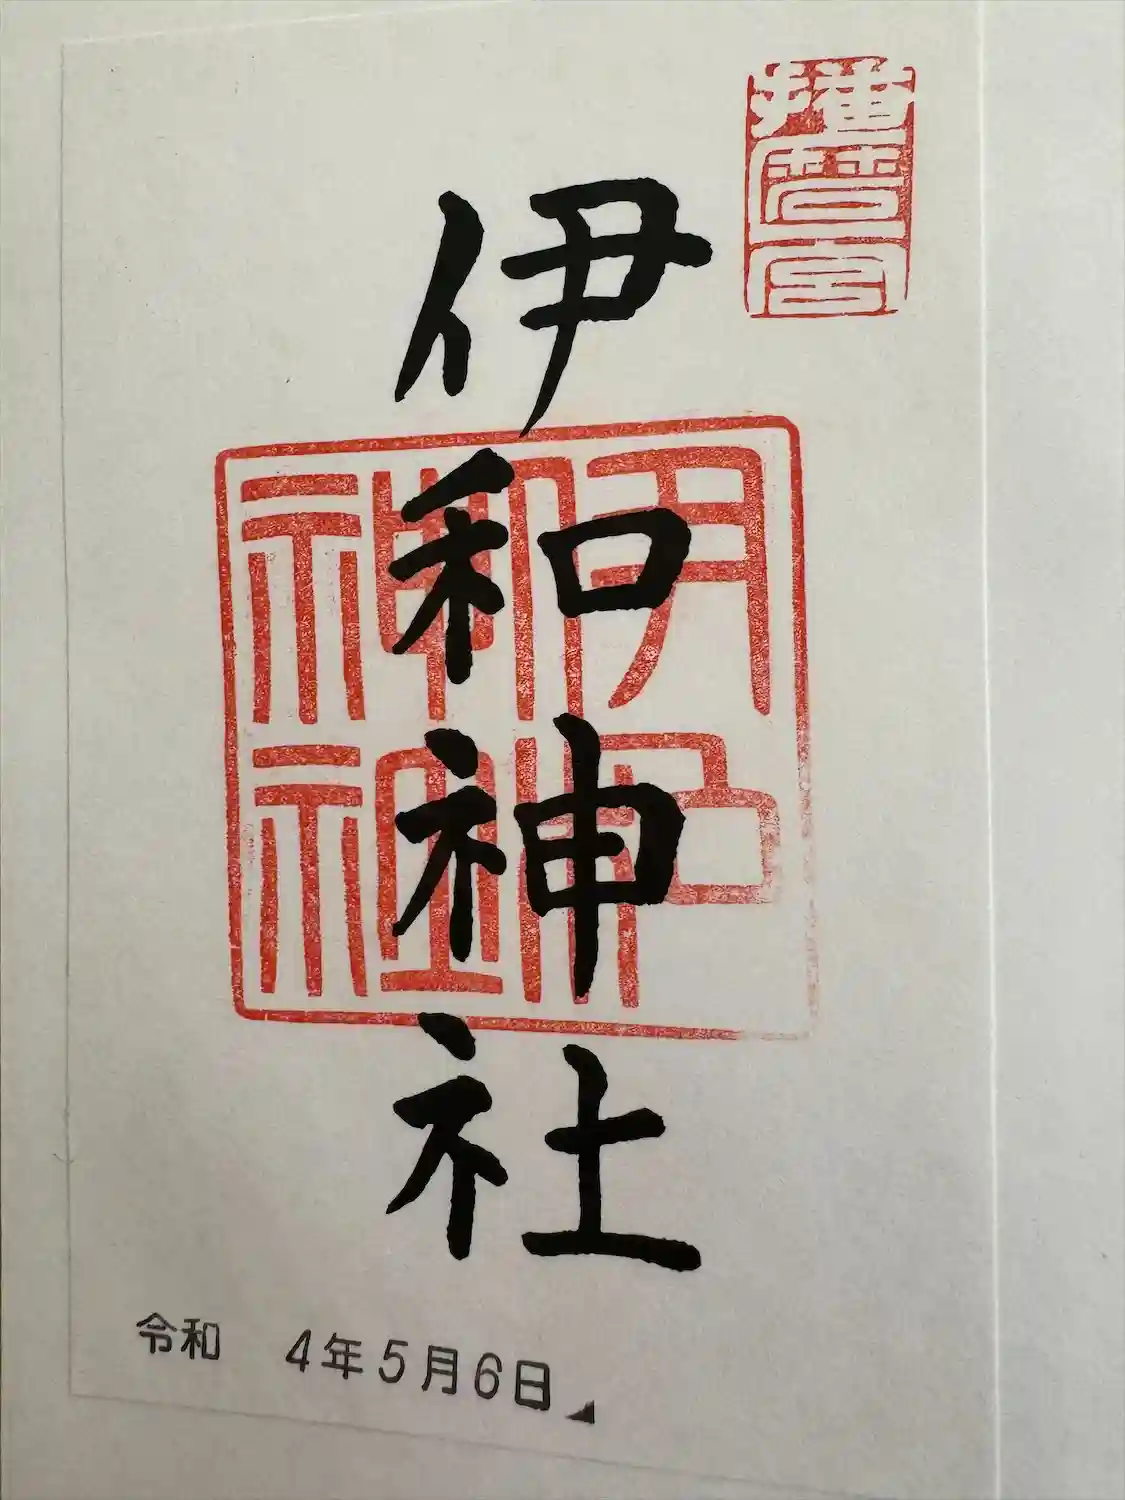 播磨
伊和神社
伊和
神社
令和 4年5月6日